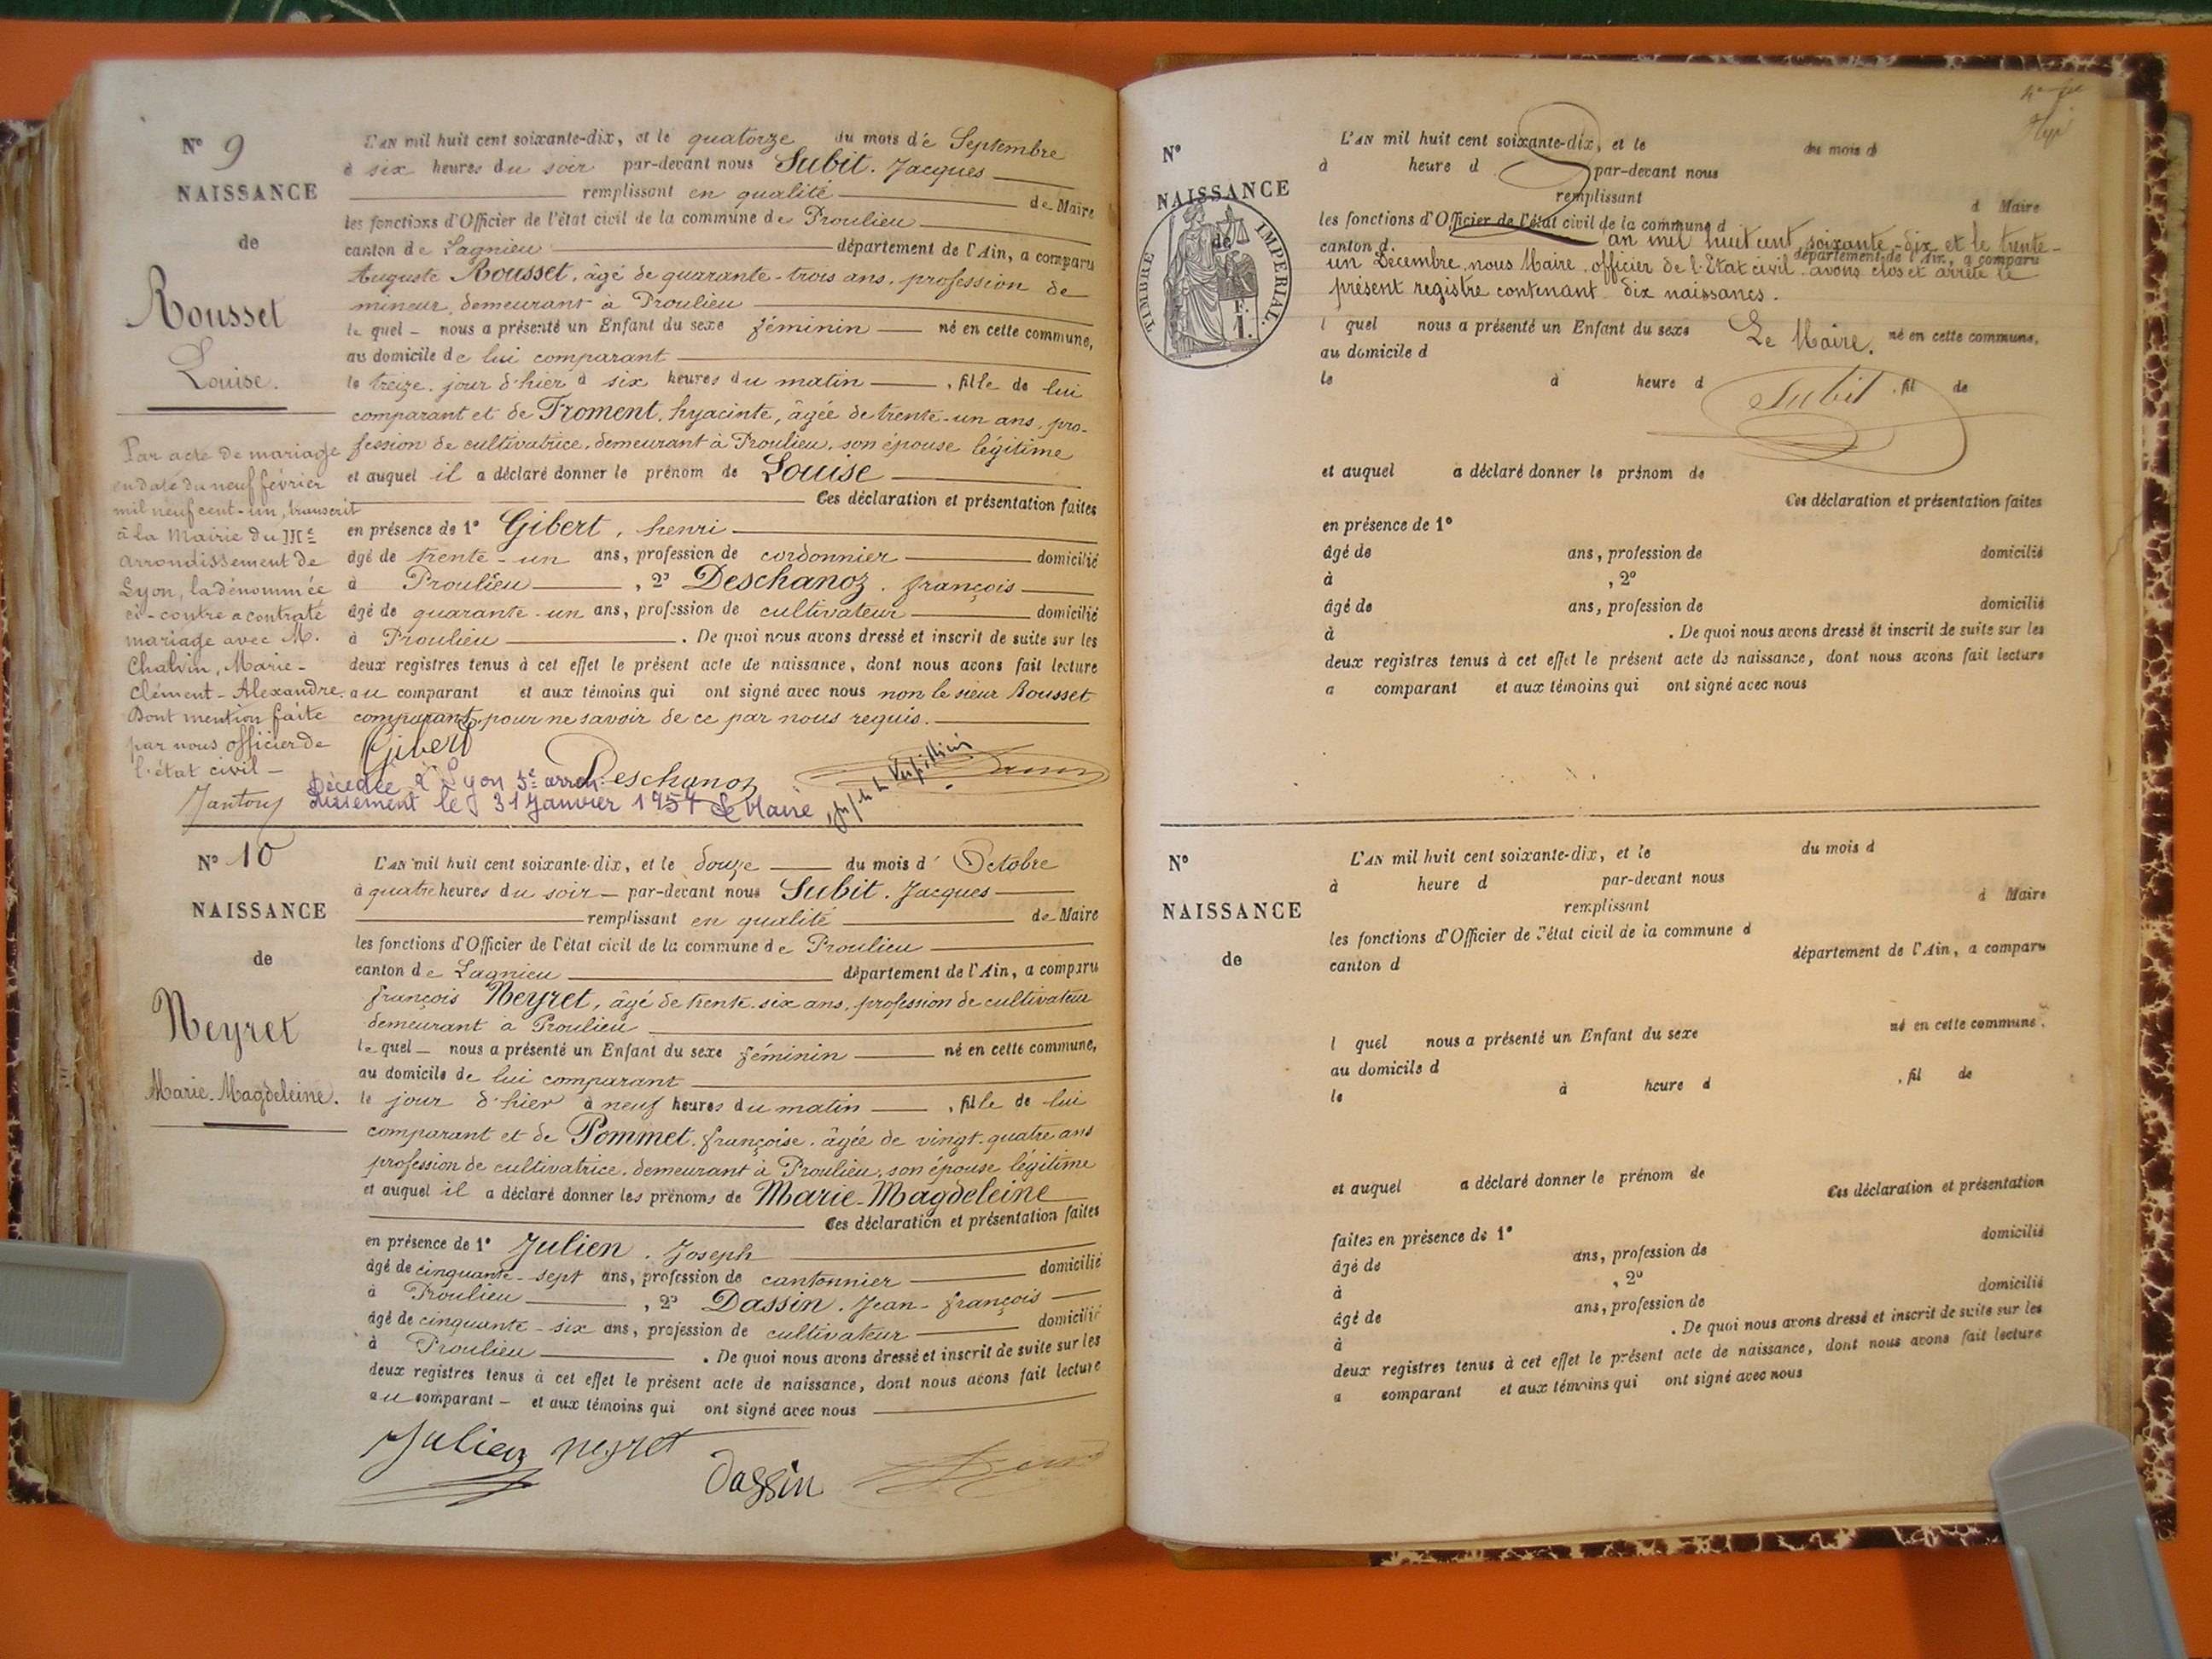 N° 9
NAISSANCE
de
Rousset
Louise.
Par acte de mariage
en date du neuf février
mil neuf cent-un, transcrit
à la Mairie du IIIe
arrondissement de
Lyon, la dénommée
ci-contre a contracté
mariage avec M.
Chalvin, Marie-
Clément-Alexandre.
Dont mention faite
par nous officier de
l'état civil —
L'AN mil huit cent soixante-dix, et le quatorze du mois de Septembre
à six heures du soir par-devant nous Subit. Jacques
remplissant en qualité de Maire
les fonctions d'Officier de l'état civil de la commune de Proulieu
canton de Lagnieu département de l'Ain, a comparu
Auguste Rousset, âgé de quarante-trois ans, profession de
mineur, demeurant à Proulieu
le quel — nous a présenté un Enfant du sexe féminin — né en cette commune,
au domicile de lui comparant
le treize, jour d'hier à six heures du matin — , fille de lui
comparant et de Froment, hyacinte, âgée de trente-un ans, pro-
fession de cultivatrice, demeurant à Proulieu, son épouse légitime
et auquel il a déclaré donner le prénom de Louise
Ces déclaration et présentation faites
en présence de 1° Gibert, henri
âgé de trente-un ans, profession de cordonnier domicilié
à Proulieu , 2° Deschanoz. françois
âgé de quarante-un ans, profession de cultivateur domicilié
à Proulieu . De quoi nous avons dressé et inscrit de suite sur les
deux registres tenus à cet effet le présent acte de naissance, dont nous avons fait lecture
au comparant et aux témoins qui ont signé avec nous non le sieur Rousset
comparant, pour ne savoir de ce par nous requis.
Gibert
Deschanoz
Décédée à Lyon 5e arron-
dissement le 31 Janvier 1954 Le Maire
N° 10
NAISSANCE
de
Neyret
Marie-Magdeleine.
L'AN mil huit cent soixante-dix, et le douze — du mois d' Octobre
à quatre heures du soir — par-devant nous Subit. Jacques
remplissant en qualité de Maire
les fonctions d'Officier de l'état civil de la commune de Proulieu
canton de Lagnieu département de l'Ain, a comparu
françois Neyret, âgé de trente-six ans, profession de cultivateur
demeurant à Proulieu
le quel — nous a présenté un Enfant du sexe féminin — né en cette commune,
au domicile de lui comparant
le jour d'hier à neuf heures du matin — , fille de lui
comparant et de Pommet, françoise, âgée de vingt-quatre ans
profession de cultivatrice, demeurant à Proulieu, son épouse légitime
et auquel il a déclaré donner les prénoms de Marie-Magdeleine
Ces déclaration et présentation faites
en présence de 1° Julien. Joseph
âgé de cinquante-sept ans, profession de cantonnier domicilié
à Proulieu , 2° Dassin. Jean-françois
âgé de cinquante-six ans, profession de cultivateur domicilié
à Proulieu . De quoi nous avons dressé et inscrit de suite sur les
deux registres tenus à cet effet le présent acte de naissance, dont nous avons fait lecture
au comparant — et aux témoins qui ont signé avec nous
Julien neyret
dassin
N°
NAISSANCE
de
TIMBRE IMPERIAL.
1 F.
L'AN mil huit cent soixante-dix, et le du mois d
à heure d par-devant nous
remplissant d Maire
les fonctions d'Officier de l'état civil de la commune d
canton d département de l'Ain, a comparu
an mil huit cent soixante-dix et le trente-
un Décembre, nous Maire, officier de l'Etat civil avons clos et arrêté le
présent registre contenant dix naissances.
l quel nous a présenté un Enfant du sexe né en cette commune,
Le Maire.
au domicile d
le à heure d , fil de
Subit
et auquel a déclaré donner le prénom de
Ces déclaration et présentation faites
en présence de 1°
âgé de ans, profession de domicilié
à , 2°
âgé de ans, profession de domicilié
à . De quoi nous avons dressé et inscrit de suite sur les
deux registres tenus à cet effet le présent acte de naissance, dont nous avons fait lecture
a comparant et aux témoins qui ont signé avec nous
N°
NAISSANCE
de
L'AN mil huit cent soixante-dix, et le du mois d
à heure d par-devant nous
remplissant d Maire
les fonctions d'Officier de l'état civil de la commune d
canton d département de l'Ain, a comparu
l quel nous a présenté un Enfant du sexe né en cette commune,
au domicile d
le à heure d , fil de
et auquel a déclaré donner le prénom de
Ces déclaration et présentation
faites en présence de 1° domicilié
âgé de ans, profession de
à , 2° domicilié
âgé de ans, profession de
à . De quoi nous avons dressé et inscrit de suite sur les
deux registres tenus à cet effet le présent acte de naissance, dont nous avons fait lecture
a comparant et aux témoins qui ont signé avec nous